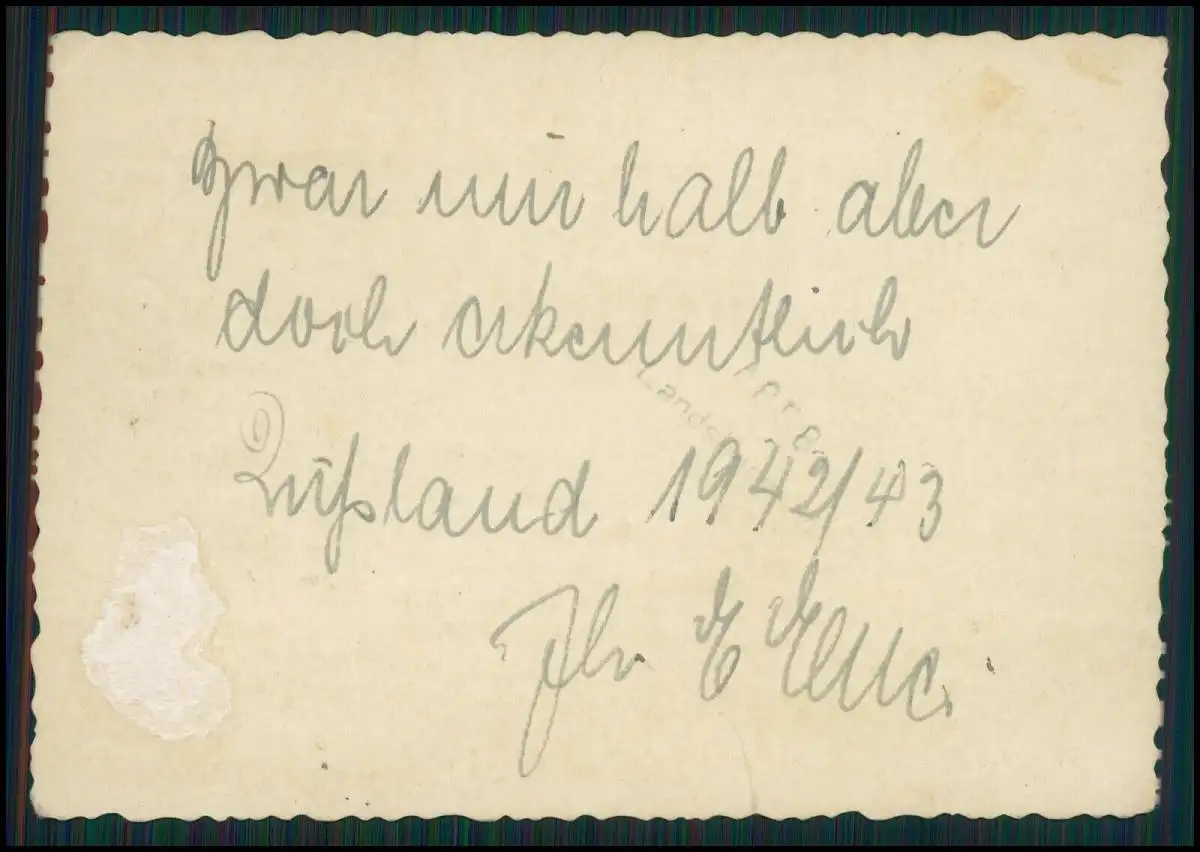 Zwar nur halb aber
doch erkenntlich
Rußland 1942/43
Ihr E
Lands